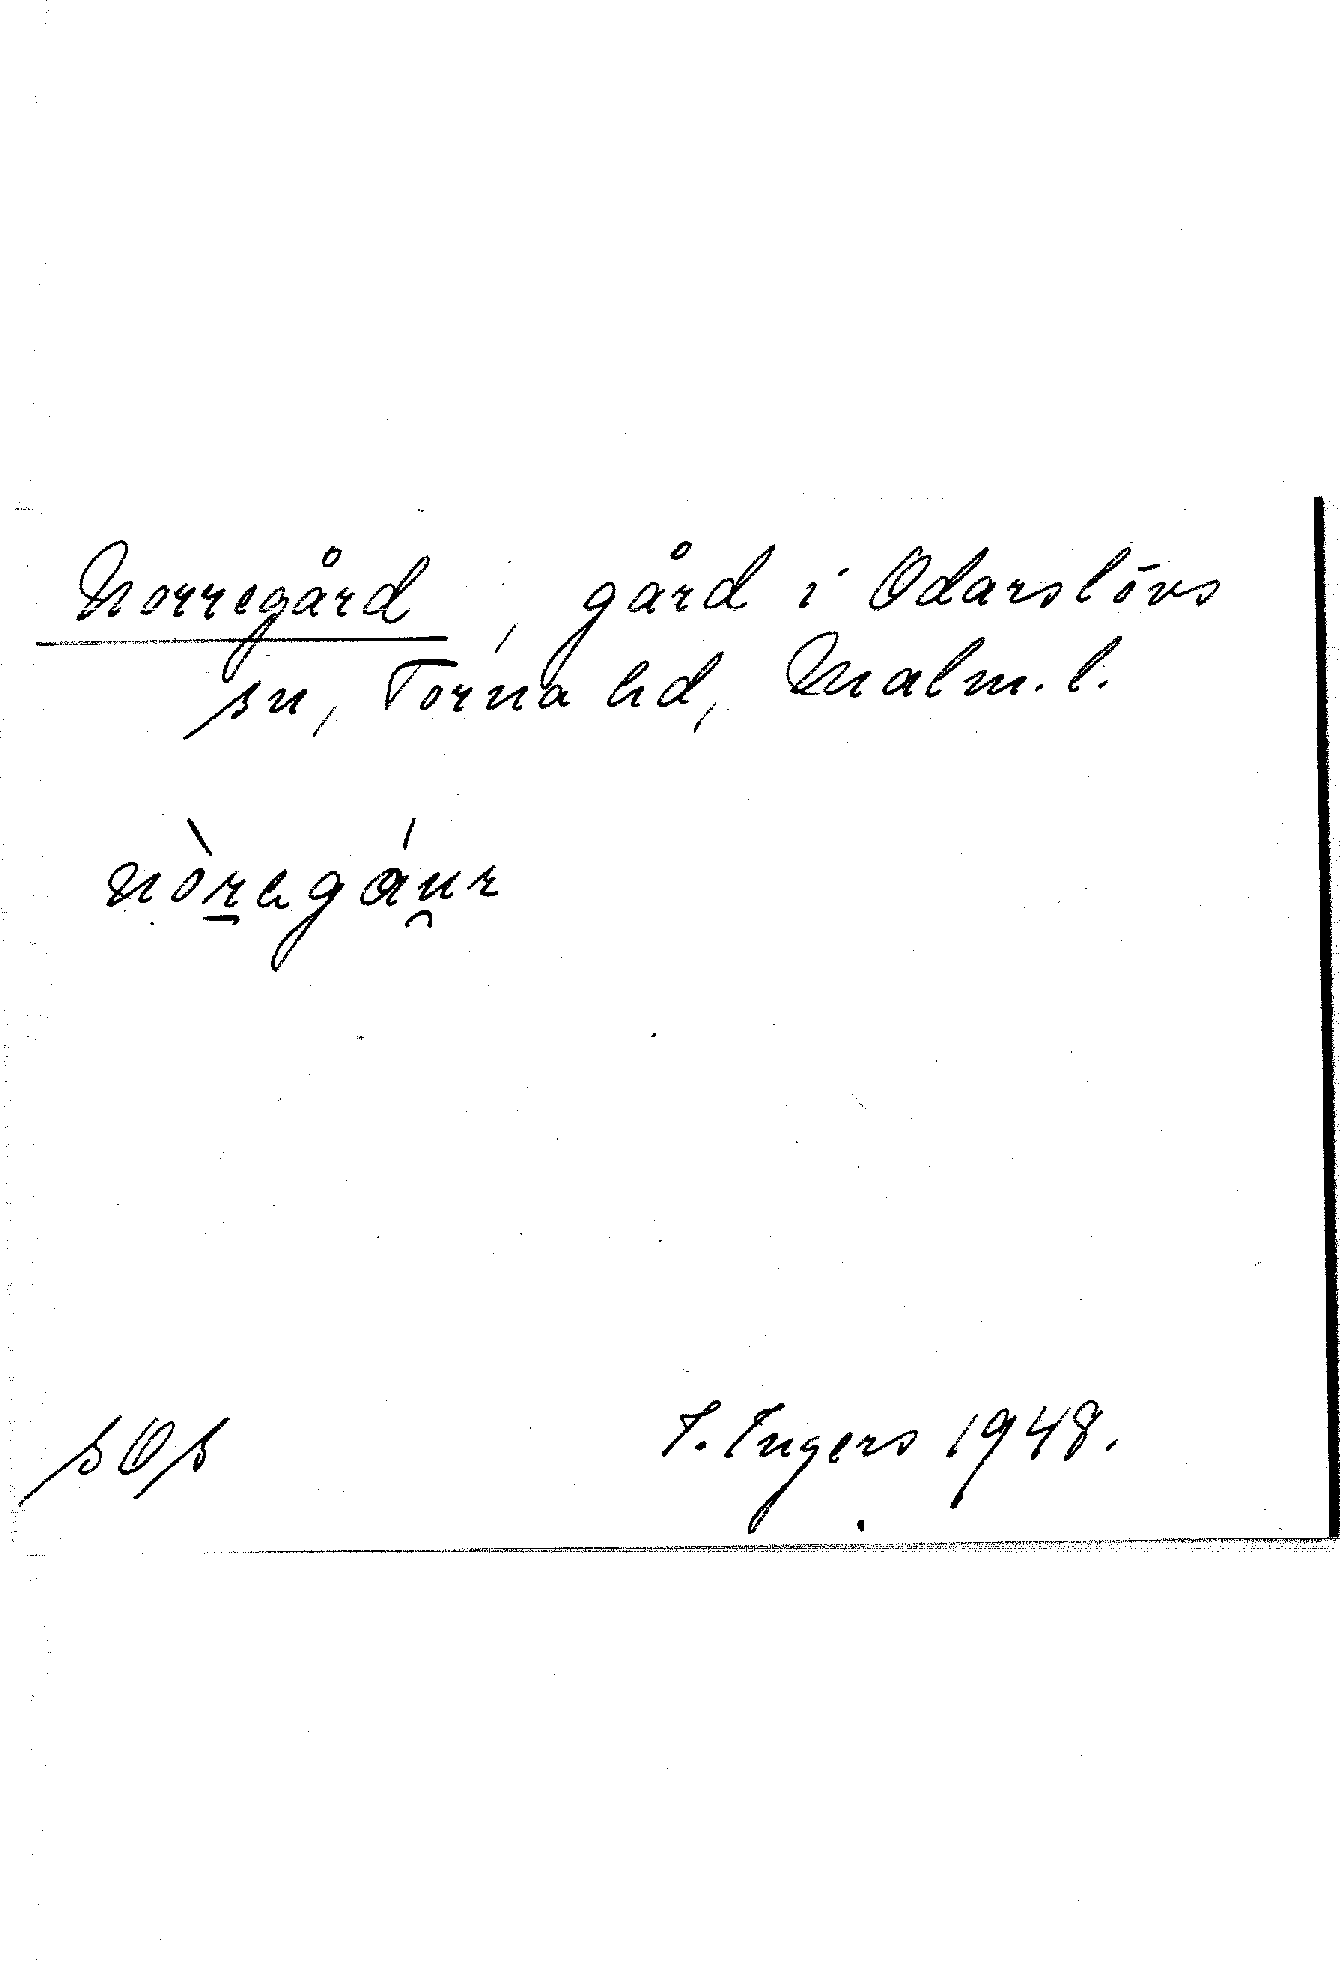 Norregård, gård i Odarslövs
sn, Torna hd, Malm. l.
nòr̲egáu̯r
sOs
I. Ingers 1948.